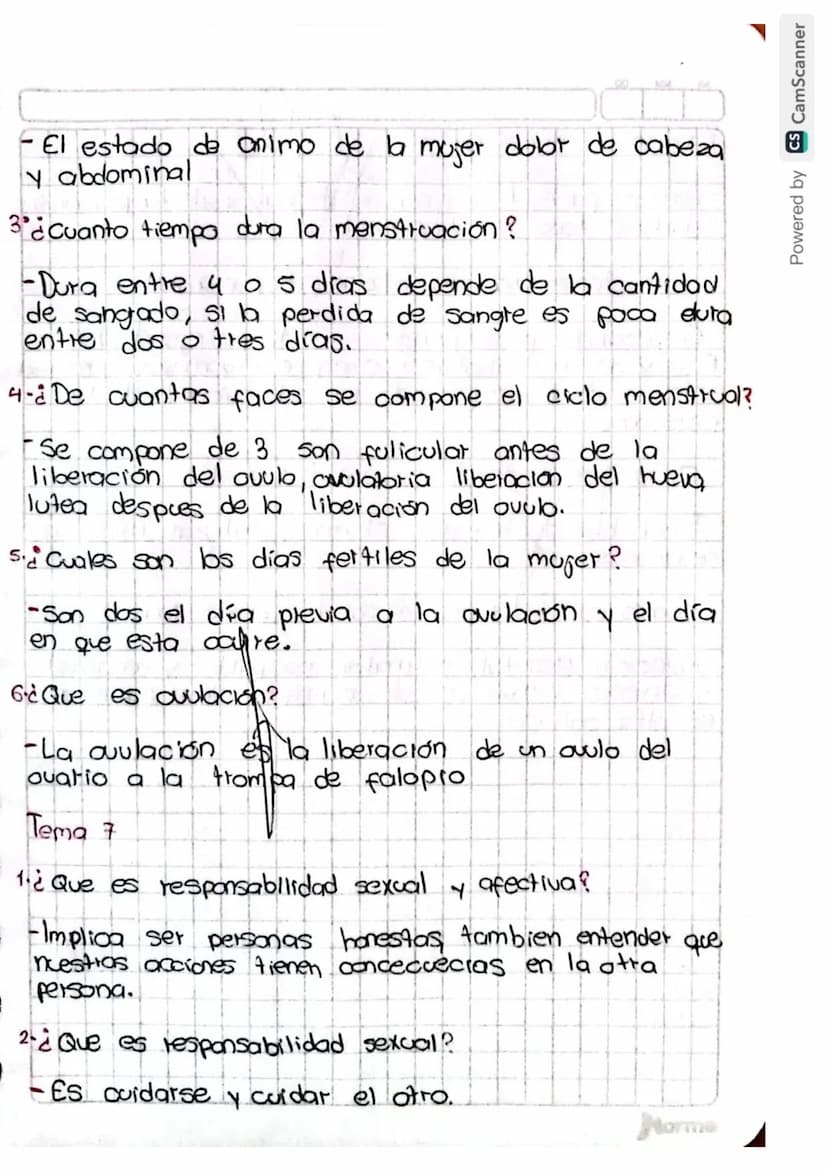 - El estado de animo de la mujer dolor de cabeza
y abdominal
3°¿Cuanto tiempo dura la menstruación?
-Dura entre 4 o 5 días depende de la cantidad
de sangrado, si la perdida de sangre es poca dura
entre dos o tres días.
4-¿De cuantas faces se compone el ciclo menstrual?
-Se compone de 3 son folicular antes de la
liberación del ovulo, ovulatoria liberacion del hueva
lutea despues de la liberación del ovulo.
5.¿Cuales son los días fertiles de la mujer?
-Son dos el día previa a la ovulación y el día
en que esta ocurre.
6.¿Que es ovulación?
-La ovulación es la liberación de un ovulo del
ovario a la trompa de falopio
Tema 7
1.¿Que es responsabilidad sexual y afectiva?
-Implica ser personas honestas, tambien entender que
nuestras acciones tienen concecuecias en la otra
persona.
2-¿Que es responsabilidad sexual?
-Es cuidarse y cuidar el otro.
Norma
Powered by CS CamScanner